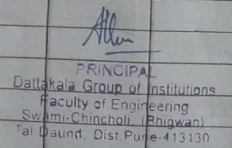 PRINCIPAL
Dattakala Group of Institutions
Faculty of Engineering
Swami-Chincholi, (Bhigwan)
Tal Daund, Dist. Pune-413130